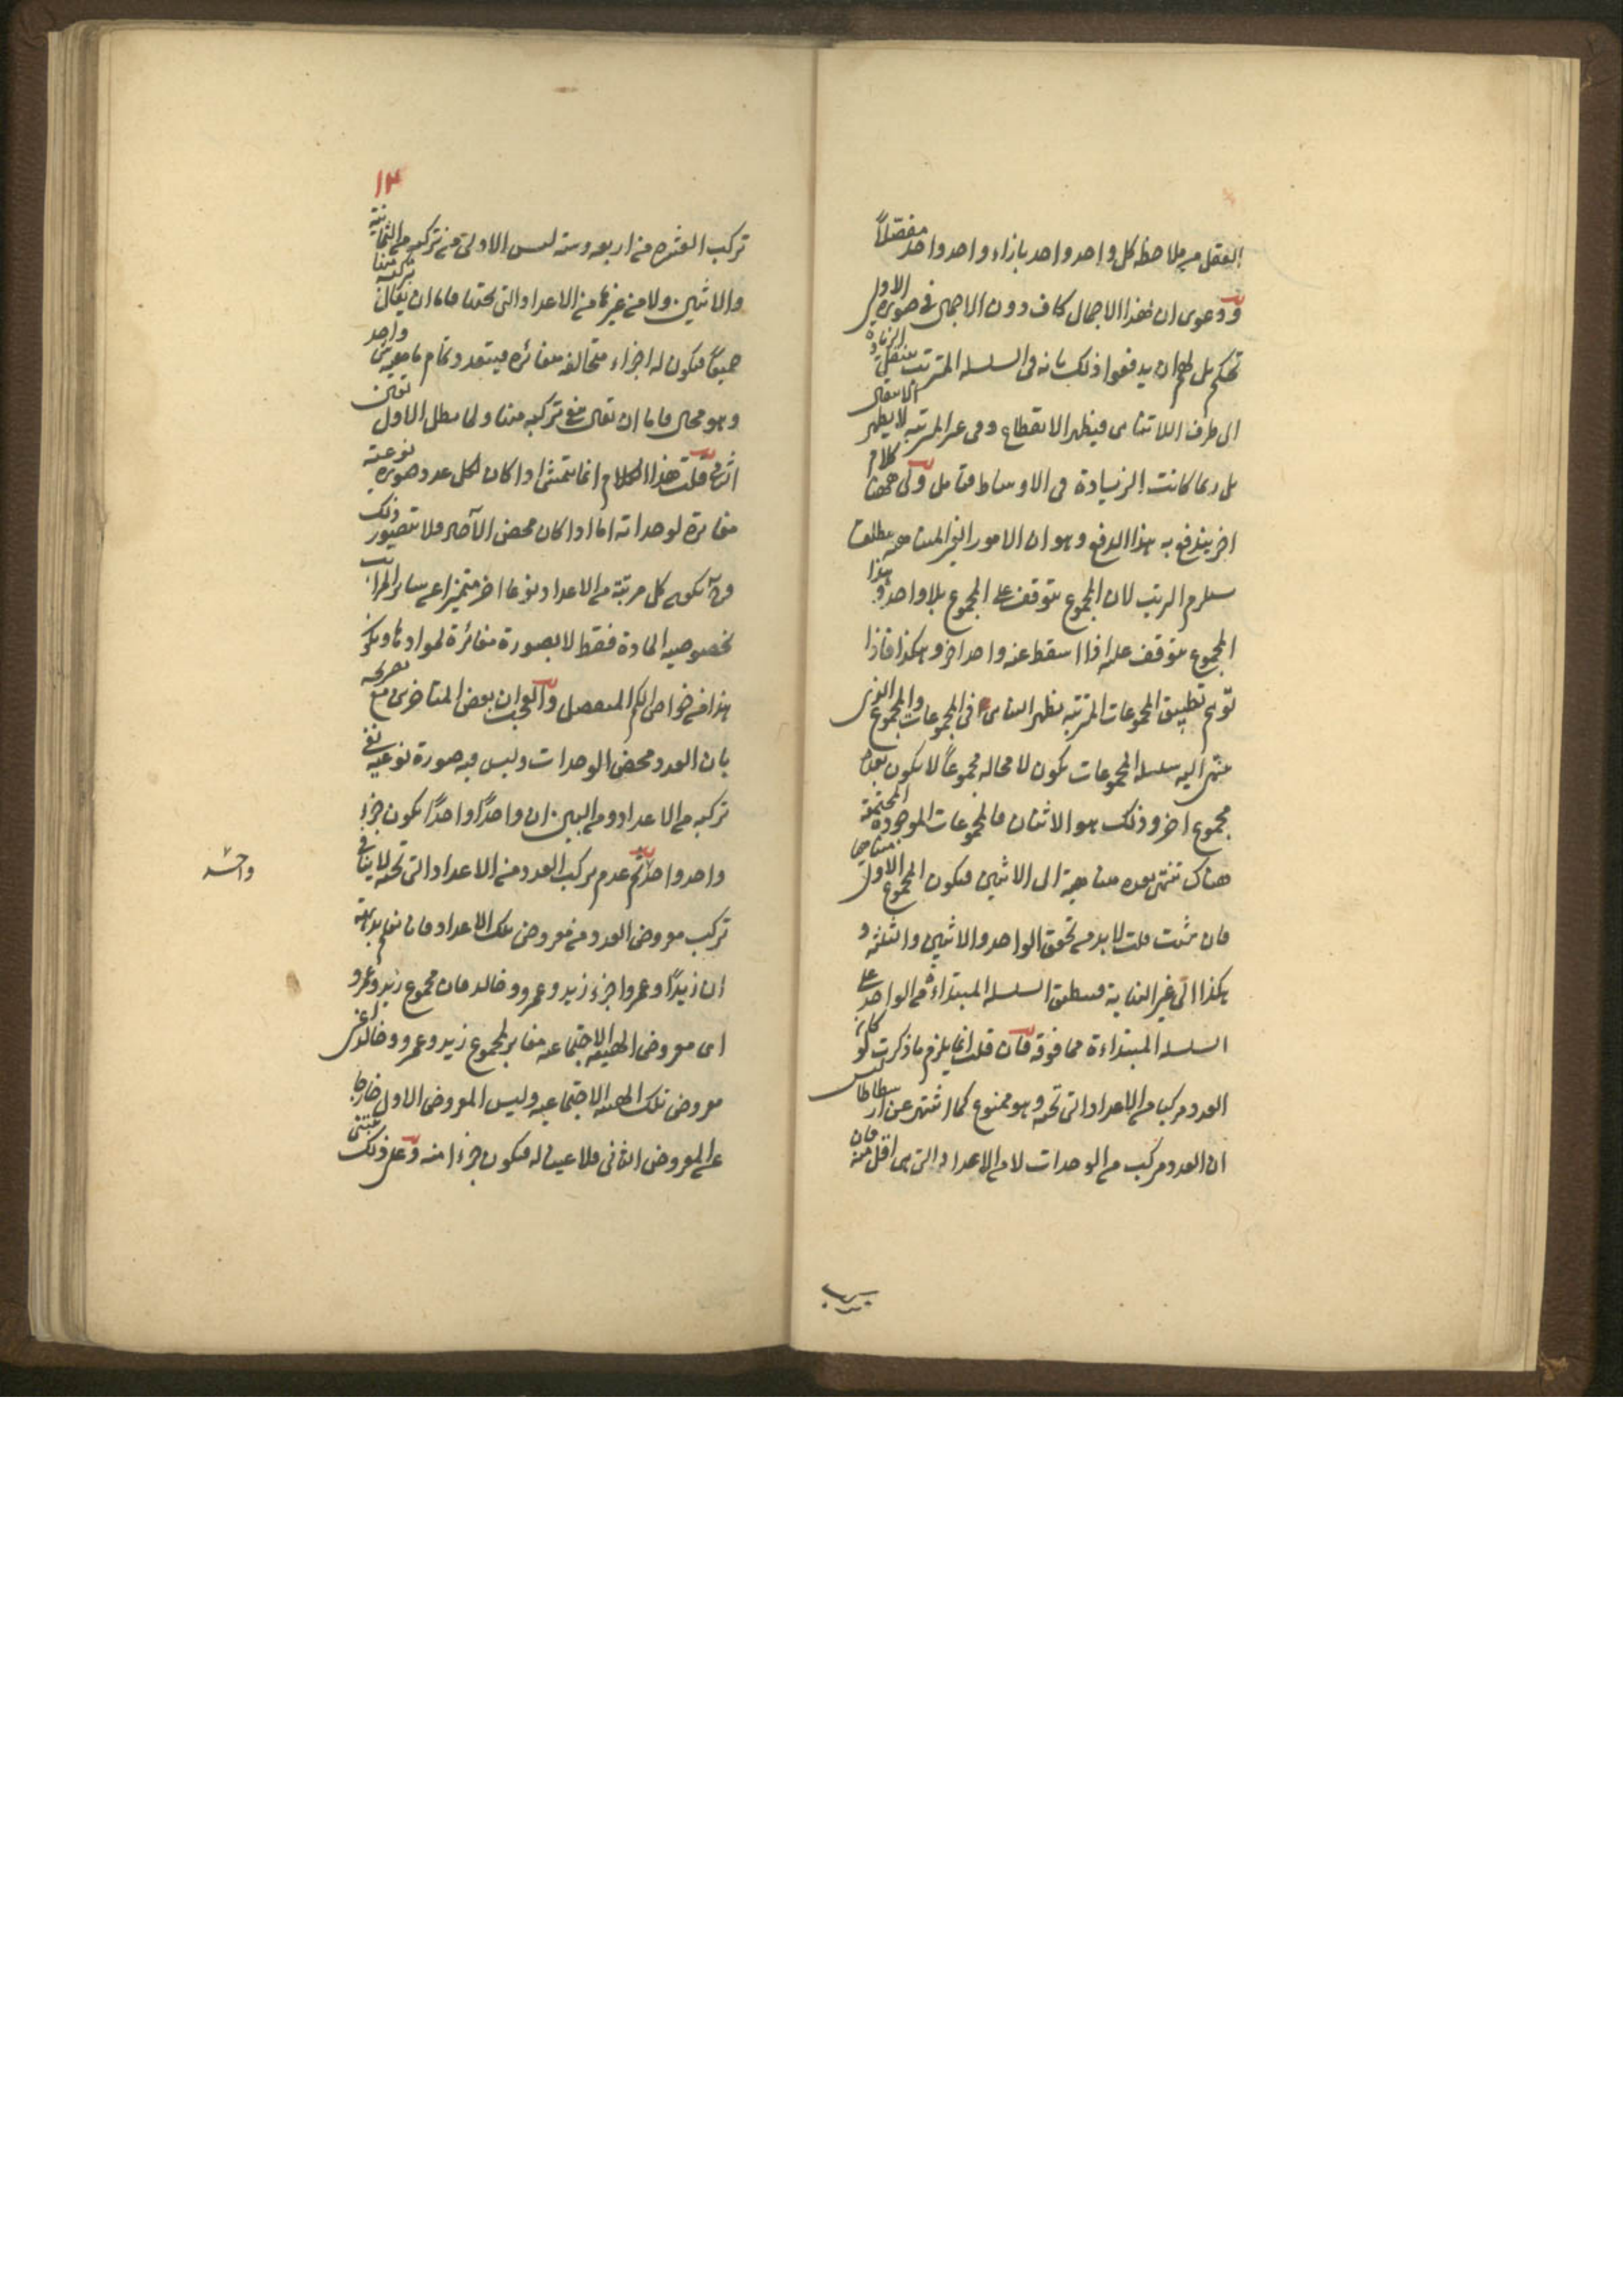 العقل من ملاحظة كل واحد واحد بازاء واحد واحد مفصلاً
ودعوى ان هذا الاجمال كاف دون الاجمال في صورة الاولى
تحكم بل لهم ان يدفعوا ذلك بانه في السلسلة المترتبة ينتقل الزيادة
الى طرف اللاتناهى فيظهر الانقطاع وفى غير المرتبة لا يظهر الانتقال
بل ربما كانت الزيادة فى الاوساط فتأمل ولى ههنا كلام
اخر يندفع به هذا الدفع وهو ان الامور الغير المتناهية مطلقا
يستلزم الترتب لان المجموع يتوقف على المجموع بلا واحد وهذا
المجموع يتوقف عليه اذا اسقط عنه واحد اخر وهكذا فاذا
توهم تطبيق المجموعات المترتبة يظهر التناهى فى المجموعات والمجموع الذى
ينتهى اليه سلسلة المجموعات يكون لا محالة مجموعاً لا يكون بعده
مجموع اخر وذلك هو الاثنان فالمجموعات الموجودة المجتمعة
هناك تنتهى بعدة متناهية الى الاثنين فيكون المجموع الاول متناهيا
فان شئت قلت لا بد من تحقق الواحد والاثنين والثلثة و
هكذا الى غير النهاية فينطبق السلسلة المبتداءة من الواحد على
السلسلة المبتداءة مما فوقه فان قلت انما يلزم ما ذكرت لو كان
العدد مركبا من الاعداد التى تحته وهو ممنوع كما اشتهر عن ارسطاطاليس
ان العدد مركب من الوحدات لا من الاعداد التى هى اقل منه فان
١٣
تركب العشرة من اربعة وستة ليس الاولى من تركبه من الثمانية
والاثنين ولا من غيرها من الاعداد التى تحتها فاما ان يقال تركبه منها
جميعا فيكون له اجزاء متخالفة متغائرة فيتعدد تمام ماهية شى واحد
وهو محال فاما ان يقال بنفى تركبه منها ولما بطل الاول تعين
الثانى قلت هذا الكلام انما يتمشى اذا كان لكل عدد صورة نوعية
مغائرة لوحداته اما اذا كان محض الآحاد فلا يتصور ذلك
وح يكون كل مرتبة من الاعداد نوعا اخر متميزا عن سائر المراتب
بخصوصية المادة فقط لا بصورة مغائرة لموادها ويكون
هذا من خواص الكم المنفصل والعجب ان بعض المتاخرين مع تصريحه
بان العدد محض الوحدات وليس فيه صورة نوعية نفى
تركبه من الاعداد ومن البين ان واحدًا واحدًا يكون جزء
واحد واحد ثم عدم تركب العدد من الاعداد التى تحته لا ينافى
واحد
تركب معروض العدد من معروض تلك الاعداد فانا نعلم بداهة
ان زيدًا وعمروا جزء زيد وعمرو وخالد فان مجموع زيد وعمرو
اى معروض الهيئة الاجتماعية مغاير لمجموع زيد وعمرو وخالد اعنى
معروض تلك الهيئة الاجتماعية وليس المعروض الاول خارجا
عن المعروض الثانى ولا عينا له فيكون جزءا منه وعلى ذلك يبتنى